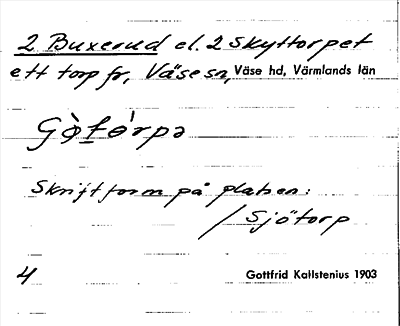 2 Buxerud el. 2 Skyttorpet
ett torp fr, Väse sn, Väse hd, Värmlands län
Skriftform på platsen:
/ Sjötorp
4
Gottfrid Kallstenius 1903